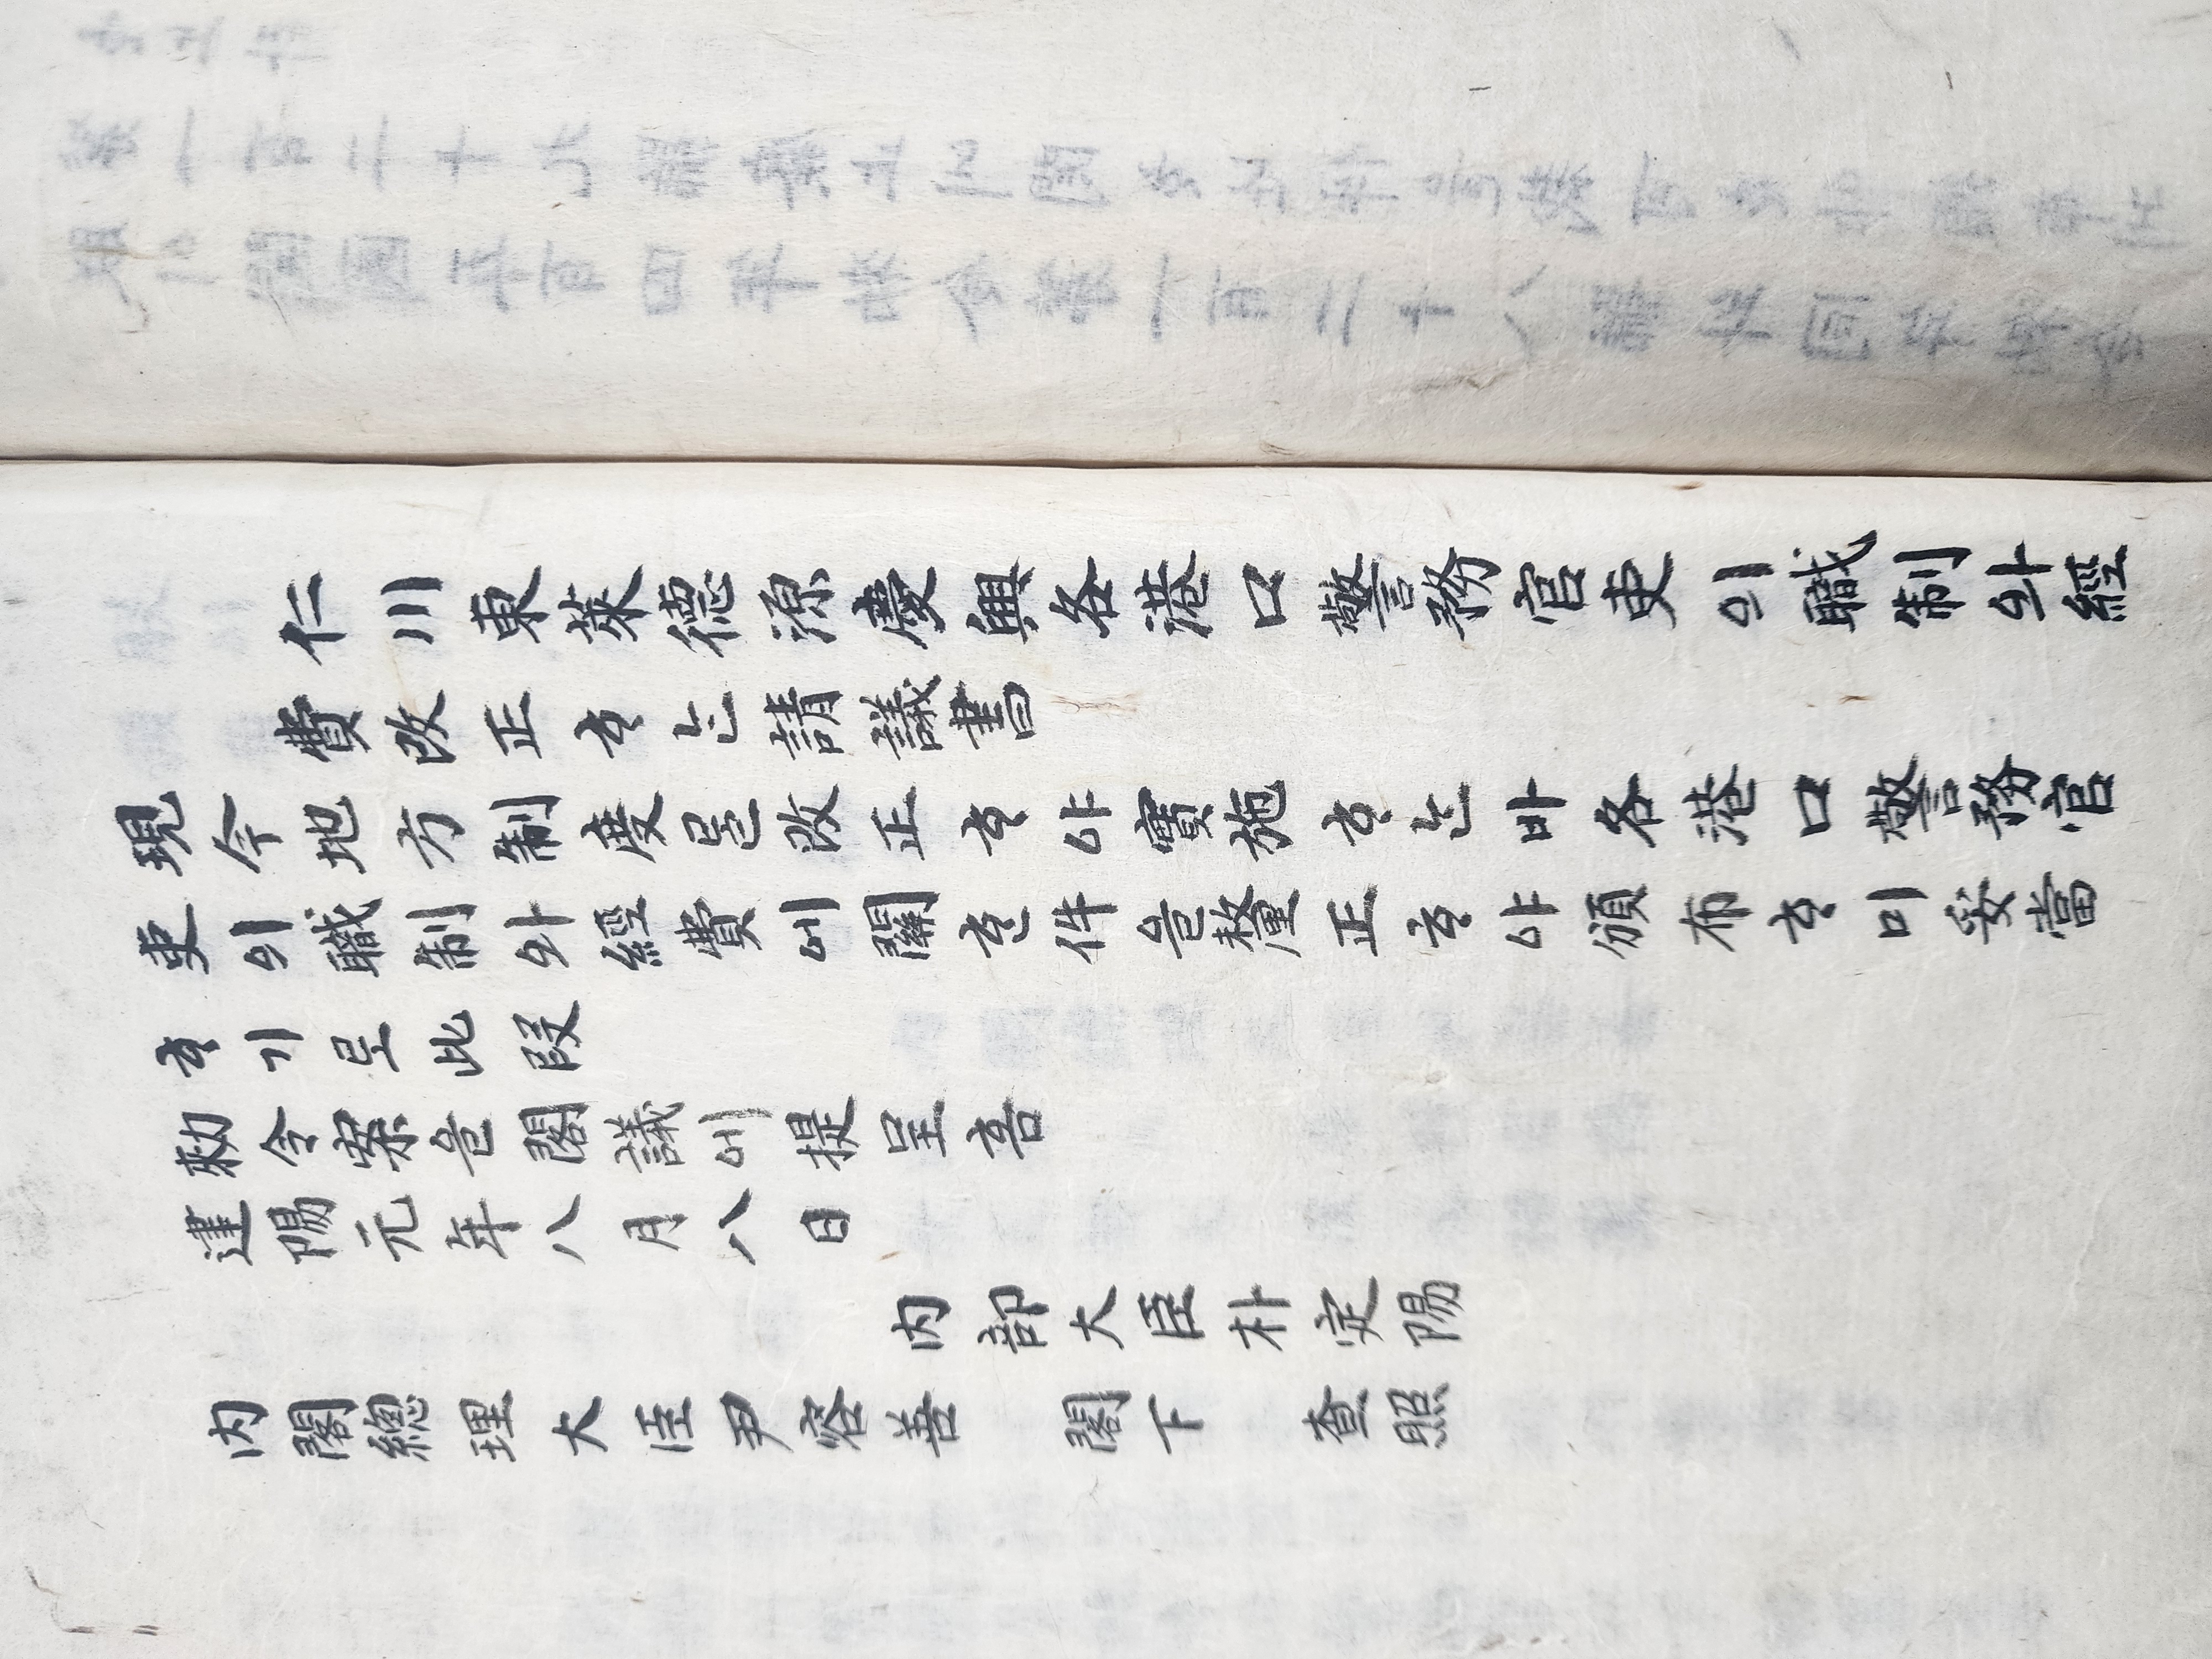 仁川東萊德源慶興各港口警務官吏의職制와經
費改正ᄒᆞᄂᆞᆫ請議書
現今地方制度를改正ᄒᆞ야實施ᄒᆞᄂᆞᆫ바各港口警務官
吏의職制와經費에關ᄒᆞᆫ件을釐正ᄒᆞ야頒布ᄒᆞ미妥當
ᄒᆞ기로此段
勅令案을閣議에提呈홈
建陽元年八月八日
內部大臣朴定陽
內閣總理大臣尹容善 閣下 查照